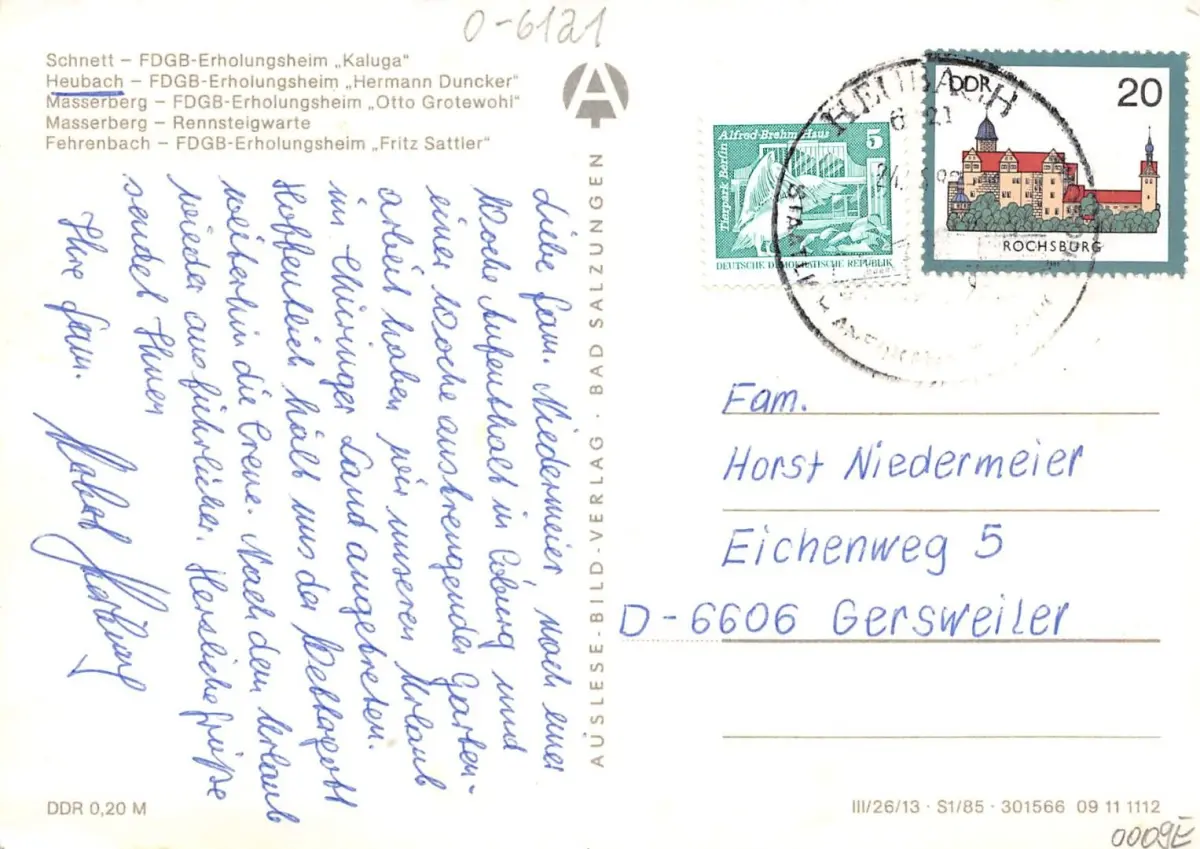 0-6121
Schnett – FDGB-Erholungsheim „Kaluga"
Heubach – FDGB-Erholungsheim „Hermann Duncker"
Masserberg – FDGB-Erholungsheim „Otto Grotewohl"
Masserberg – Rennsteigwarte
Fehrenbach – FDGB-Erholungsheim „Fritz Sattler"
Liebe Fam. Niedermeier, nach einer
Woche Aufenthalt in Coburg und
einer Woche anstrengender Garten-
arbeit haben wir unseren Urlaub
im Thüringer Land angetreten.
Hoffentlich hält uns der Wettergott
weiterhin die Treue. Nach dem Urlaub
wieder ausführlicher. Herzliche Grüße
sendet Ihnen
Ihre Fam.
AUSLESE-BILD-VERLAG · BAD SALZUNGEN
Alfred-Brehm-Haus
5
Tierpark Berlin
DEUTSCHE DEMOKRATISCHE REPUBLIK
DDR
20
ROCHSBURG
HEUBACH
6121
Fam.
Horst Niedermeier
Eichenweg 5
D-6606 Gersweiler
DDR 0,20 M
III/26/13 · S1/85 · 301566 09 11 1112
0009E